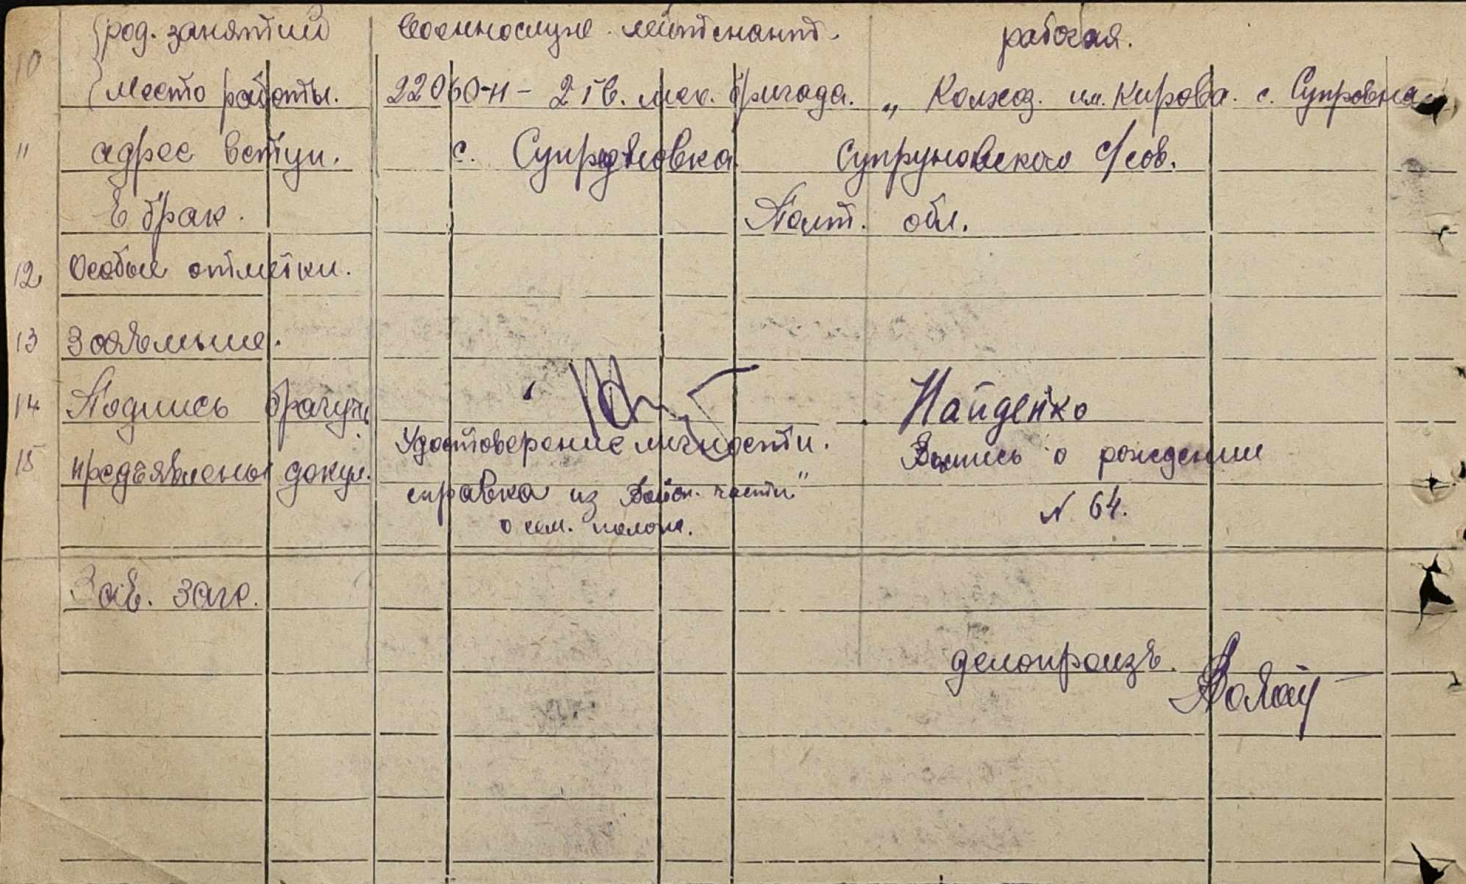 10 род. занятий военнослуж. лейтенант. рабочая.
место работы. 22060-н - 2 гв. мех. бригада. „ Колхоз им. Кирова. с. Супровка
" адрес вступ. с. Супруновка Супруновского с/сов.
в брак. Полт. обл.
12 Особые отметки.
13
14 Подпись брачущ. Найденко
15 предъявлены докум. Удостоверение личности. Выпись о рождении
справка из войск. части" № 64.
о сем. полож.
Зав. загс.
делопроизв.